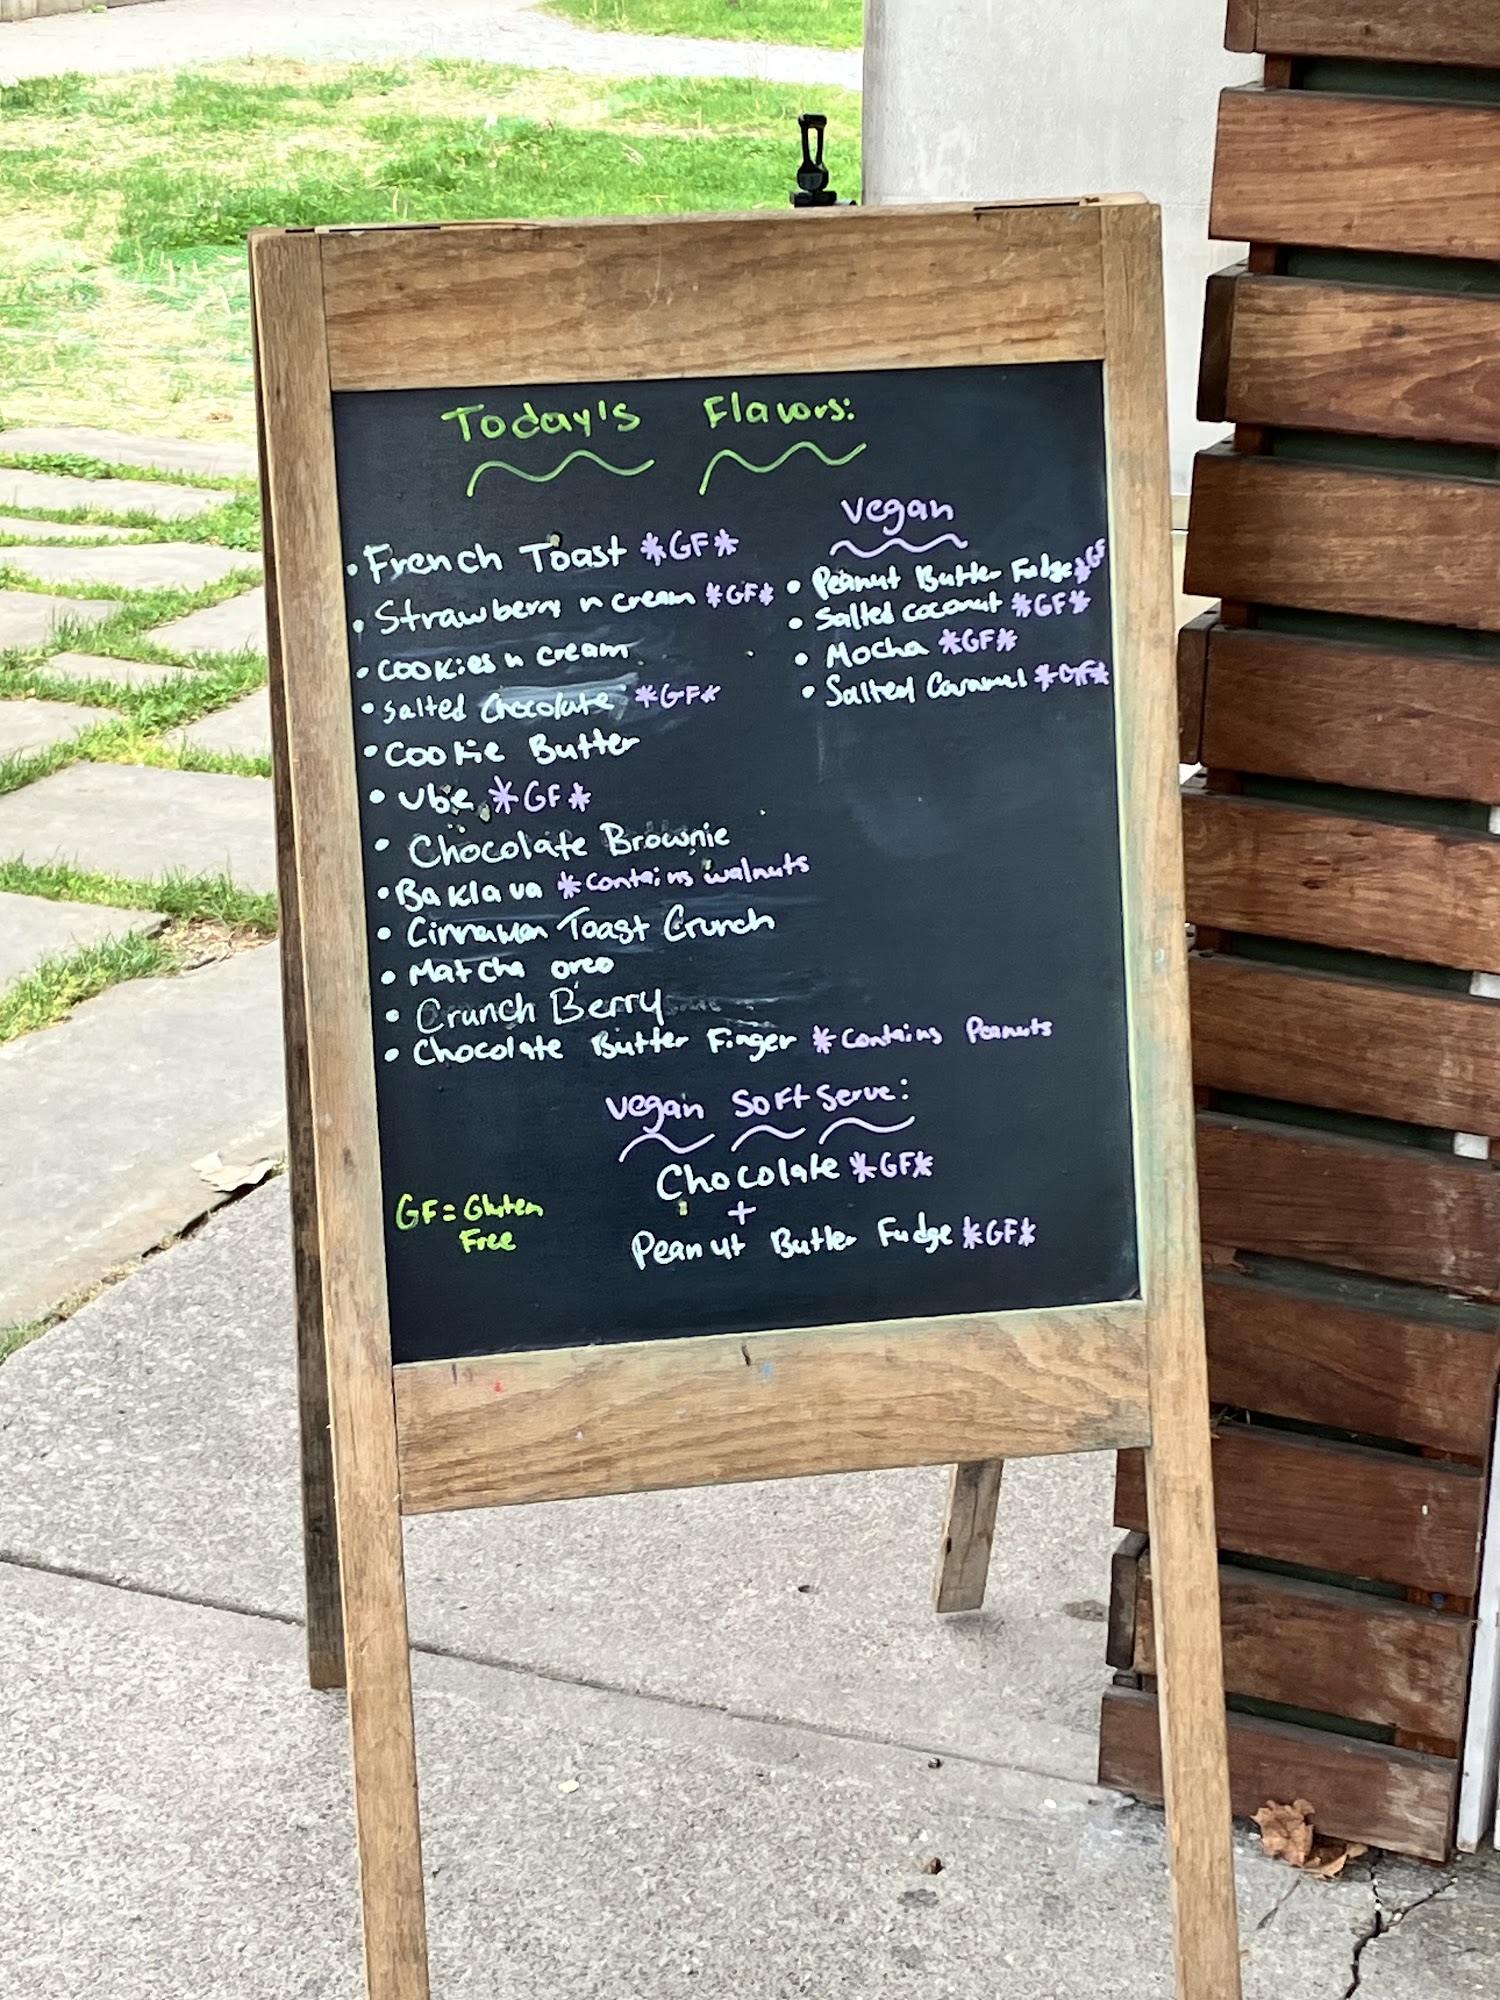 Today's Flavors:
• French Toast *GF*
• Strawberry n cream *GF*
• cookies n cream
• salted chocolate *GF*
• Cookie Butter
• Ube *GF*
• Chocolate Brownie
• Baklava *contains walnuts
• Cinnamon Toast Crunch
• Matcha oreo
• Crunch Berry
• Chocolate Butter Finger *contains Peanuts
Vegan
• Peanut Butter Fudge *GF
• Salted coconut *GF*
• Mocha *GF*
• Salted Caramel *GF*
Vegan Soft Serve:
Chocolate *GF*
+
Peanut Butter Fudge *GF*
GF = Gluten
Free